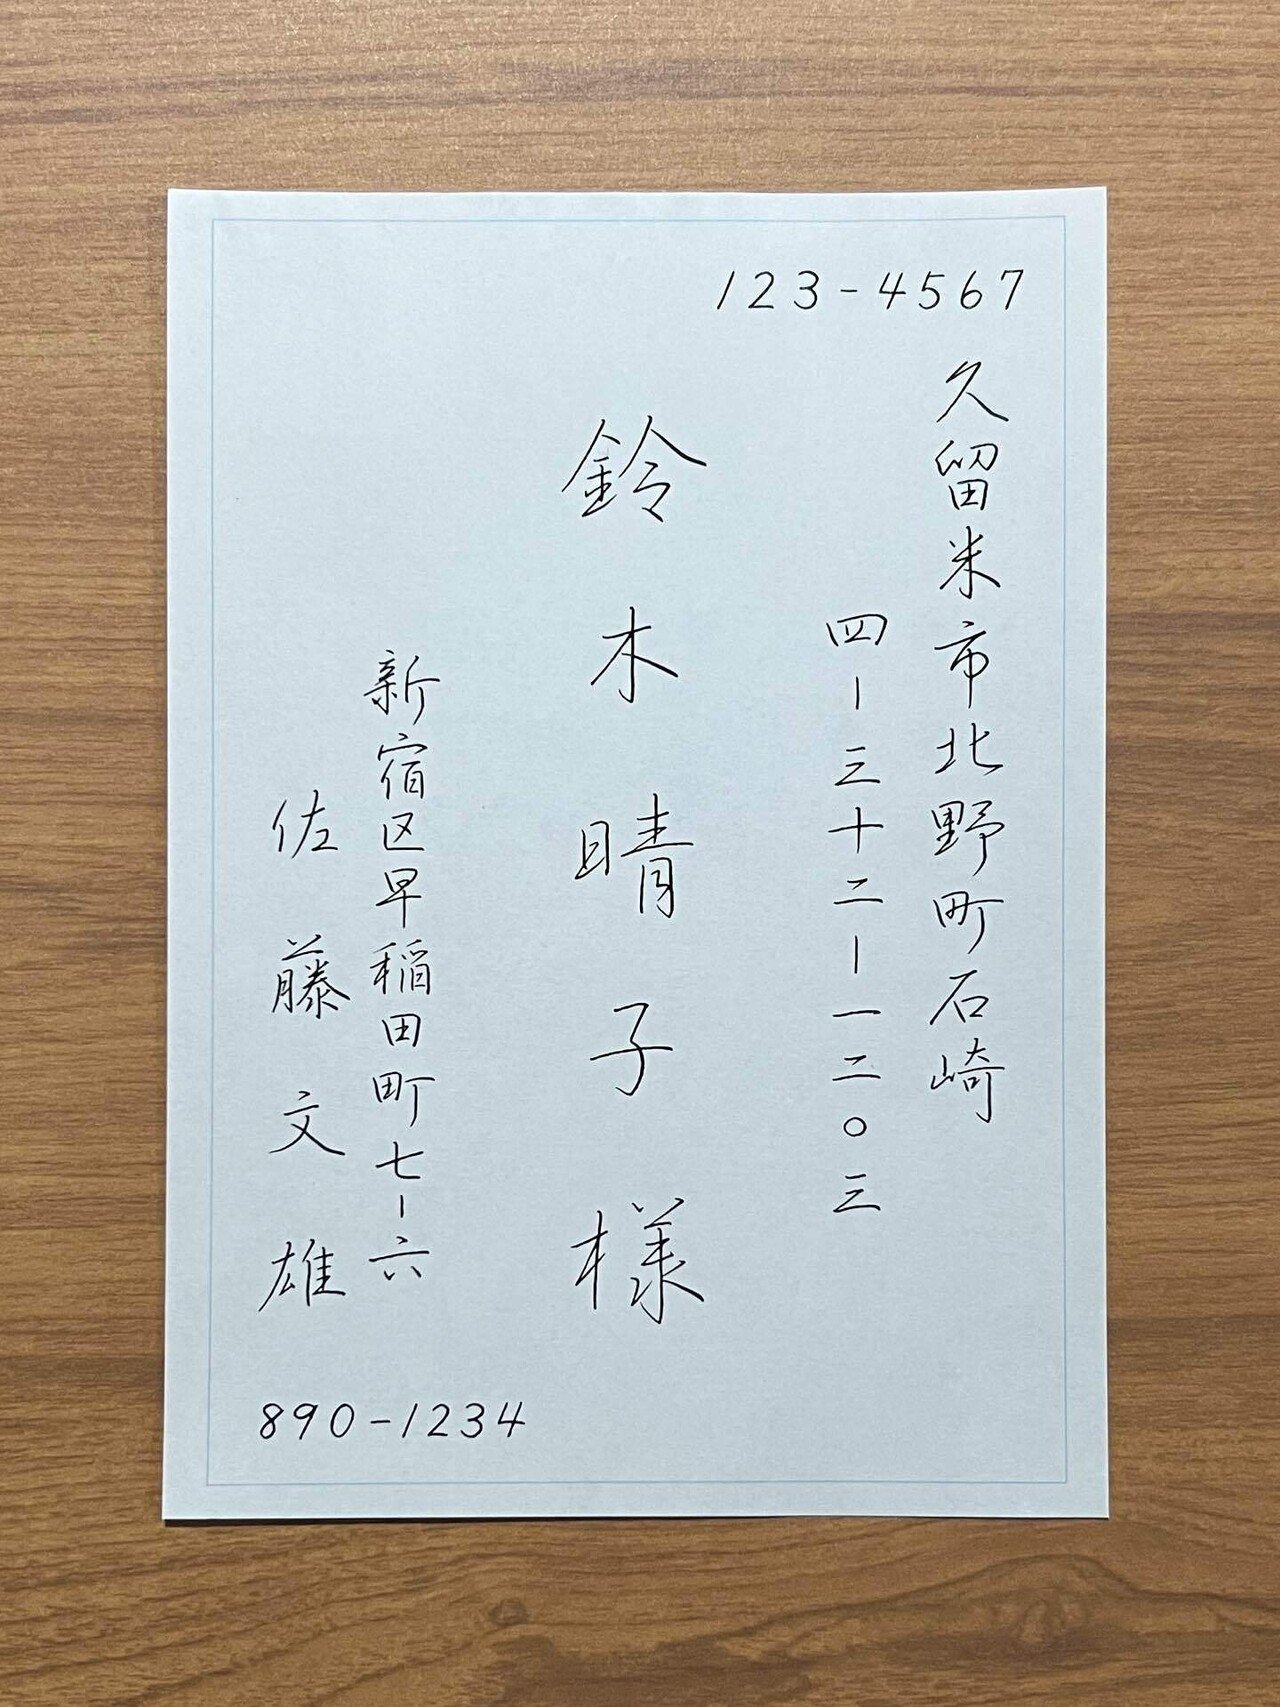 123-4567
久留米市北野町石崎
四-三十二-一二〇三
鈴木晴子様
新宿区早稲田町七-六
佐藤文雄
890-1234